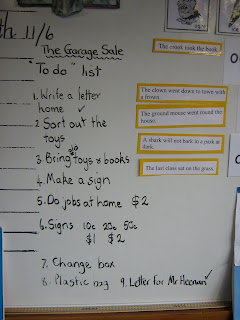 th 11/6
The Garage Sale
"To do" list
1. Write a letter
home ✓
2. Sort out the
toys
3. Bring toys & books
4. Make a sign
5. Do jobs at home $2
6. Signs 10c 20c 50c
$1 $2
7. Change box
8. Plastic bag 9. Letter for Mr Heenan ✓
The crook took the book.
The clown went down to town with
a frown.
The ground mouse went round the
house.
A shark will not bark in a park at
dark.
The last class sat on the grass.